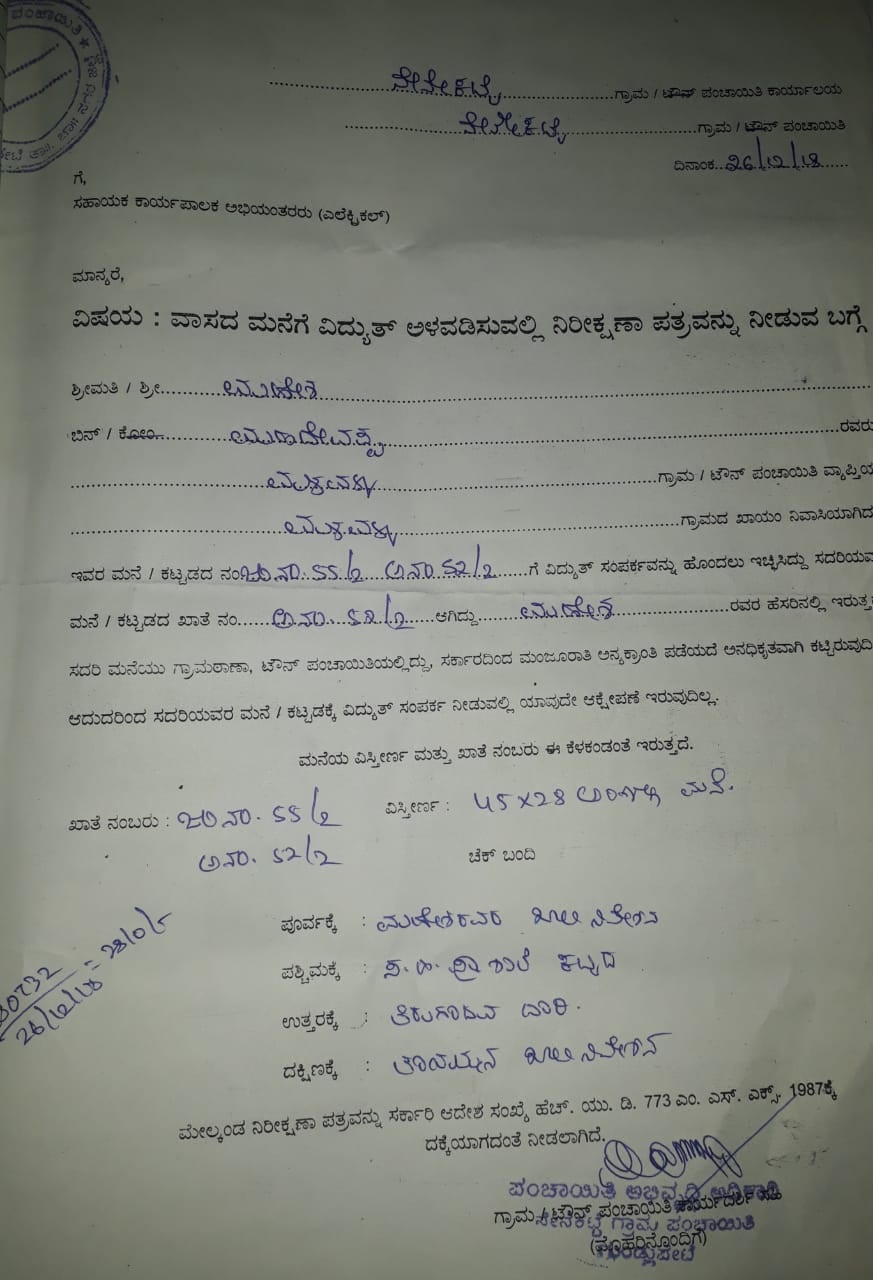 ಪಂಚಾಯಿತಿ
ಗ್ರಾಮ / ಟೌನ್ ಪಂಚಾಯಿತಿ ಕಾರ್ಯಾಲಯ
ಗ್ರಾಮ / ಟೌನ್ ಪಂಚಾಯಿತಿ
ದಿನಾಂಕ..26/12/18......
ಗೆ,
ಸಹಾಯಕ ಕಾರ್ಯಪಾಲಕ ಅಭಿಯಂತರರು (ಎಲೆಕ್ಟ್ರಿಕಲ್)
ಮಾನ್ಯರೆ,
ವಿಷಯ : ವಾಸದ ಮನೆಗೆ ವಿದ್ಯುತ್ ಅಳವಡಿಸುವಲ್ಲಿ ನಿರೀಕ್ಷಣಾ ಪತ್ರವನ್ನು ನೀಡುವ ಬಗ್ಗೆ
ಶ್ರೀಮತಿ / ಶ್ರೀ............ಮಹೇಶ
ಬಿನ್ / ಕೋಂ............ಮಹಾದೇವಪ್ಪ............ರವರು
ಗ್ರಾಮ / ಟೌನ್ ಪಂಚಾಯಿತಿ ವ್ಯಾಪ್ತಿಯ
ಗ್ರಾಮದ ಖಾಯಂ ನಿವಾಸಿಯಾಗಿದ
ಇವರ ಮನೆ / ಕಟ್ಟಡದ ನಂ ಜ.ನಂ. 55/2 ಅ.ನಂ. 52/2......ಗೆ ವಿದ್ಯುತ್ ಸಂಪರ್ಕವನ್ನು ಹೊಂದಲು ಇಚ್ಛಿಸಿದ್ದು ಸದರಿಯವ
ಮನೆ / ಕಟ್ಟಡದ ಖಾತೆ ನಂ......ಅ.ನಂ. 52/2......ಆಗಿದ್ದು......ಮಹೇಶ............ರವರ ಹೆಸರಿನಲ್ಲಿ ಇರುತ್ತ
ಸದರಿ ಮನೆಯು ಗ್ರಾಮಠಾಣಾ, ಟೌನ್ ಪಂಚಾಯಿತಿಯಲ್ಲಿದ್ದು, ಸರ್ಕಾರದಿಂದ ಮಂಜೂರಾತಿ ಅನ್ಯಕ್ರಾಂತಿ ಪಡೆಯದೆ ಅನಧಿಕೃತವಾಗಿ ಕಟ್ಟಿರುವುದಿ
ಆದುದರಿಂದ ಸದರಿಯವರ ಮನೆ / ಕಟ್ಟಡಕ್ಕೆ ವಿದ್ಯುತ್ ಸಂಪರ್ಕ ನೀಡುವಲ್ಲಿ ಯಾವುದೇ ಆಕ್ಷೇಪಣೆ ಇರುವುದಿಲ್ಲ.
ಮನೆಯ ವಿಸ್ತೀರ್ಣ ಮತ್ತು ಖಾತೆ ನಂಬರು ಈ ಕೆಳಕಂಡಂತೆ ಇರುತ್ತದೆ.
ಖಾತೆ ನಂಬರು : ಜ.ನಂ. 55/2 ವಿಸ್ತೀರ್ಣ : 45x28 ಮನೆ.
ಅ.ನಂ. 52/2 ಚೆಕ್ ಬಂದಿ
ಪೂರ್ವಕ್ಕೆ : ಮಹೇಶರವರ ಖಾಲಿ ನಿವೇಶನ
ಪಶ್ಚಿಮಕ್ಕೆ : ಸ.ಹಿ.ಪ್ರಾ ಶಾಲೆ ಕಟ್ಟಡ
ಉತ್ತರಕ್ಕೆ : ತಿರುಗಾಡುವ ದಾರಿ.
ದಕ್ಷಿಣಕ್ಕೆ : ಖಾಲಿ ನಿವೇಶನ
ಮೇಲ್ಕಂಡ ನಿರೀಕ್ಷಣಾ ಪತ್ರವನ್ನು ಸರ್ಕಾರಿ ಆದೇಶ ಸಂಖ್ಯೆ ಹೆಚ್. ಯು. ಡಿ. 773 ಎಂ. ಎಸ್. ಎಕ್ಸ್. 1987ಕ್ಕೆ
ದಕ್ಕೆಯಾಗದಂತೆ ನೀಡಲಾಗಿದೆ.
ಪಂಚಾಯಿತಿ ಅಭಿವೃದ್ಧಿ ಅಧಿಕಾರಿ
ಗ್ರಾಮ / ಟೌನ್ ಪಂಚಾಯಿತಿ ಕಾರ್ಯದರ್ಶಿ ಸಹಿ
ಗ್ರಾಮ ಪಂಚಾಯಿತಿ
(ಮೊಹರಿನೊಂದಿಗೆ)
ಗುಂಡ್ಲುಪೇಟೆ